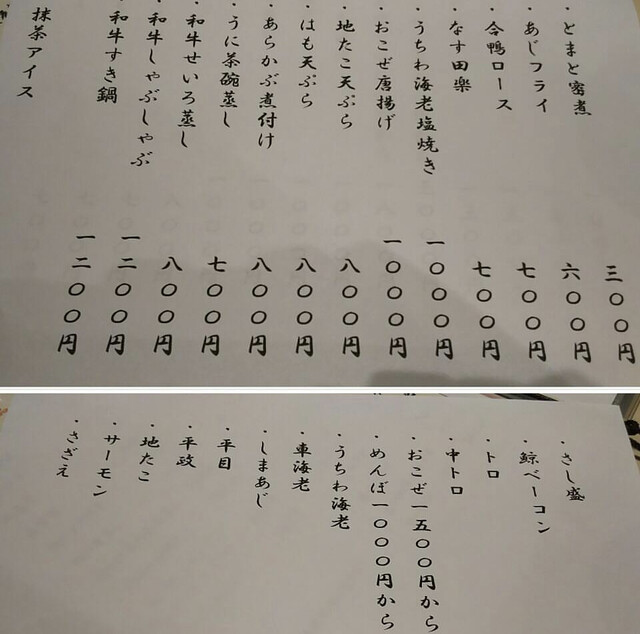 ・とまと密煮 三〇〇円
・あじフライ 六〇〇円
・合鴨ロース 七〇〇円
・なす田楽 七〇〇円
・うちわ海老塩焼き 一〇〇〇円
・おこぜ唐揚げ 一〇〇〇円
・地たこ天ぷら 八〇〇円
・はも天ぷら 八〇〇円
・あらかぶ煮付け 八〇〇円
・うに茶碗蒸し 七〇〇円
・和牛せいろ蒸し 八〇〇円
・和牛しゃぶしゃぶ 一二〇〇円
・和牛すき鍋 一二〇〇円
抹茶アイス
・さし盛
・鯨ベーコン
・トロ
・中トロ
・おこぜ一五〇〇円から
・めんぼ一〇〇〇円から
・うちわ海老
・車海老
・しまあじ
・平目
・平政
・地たこ
・サーモン
・さざえ